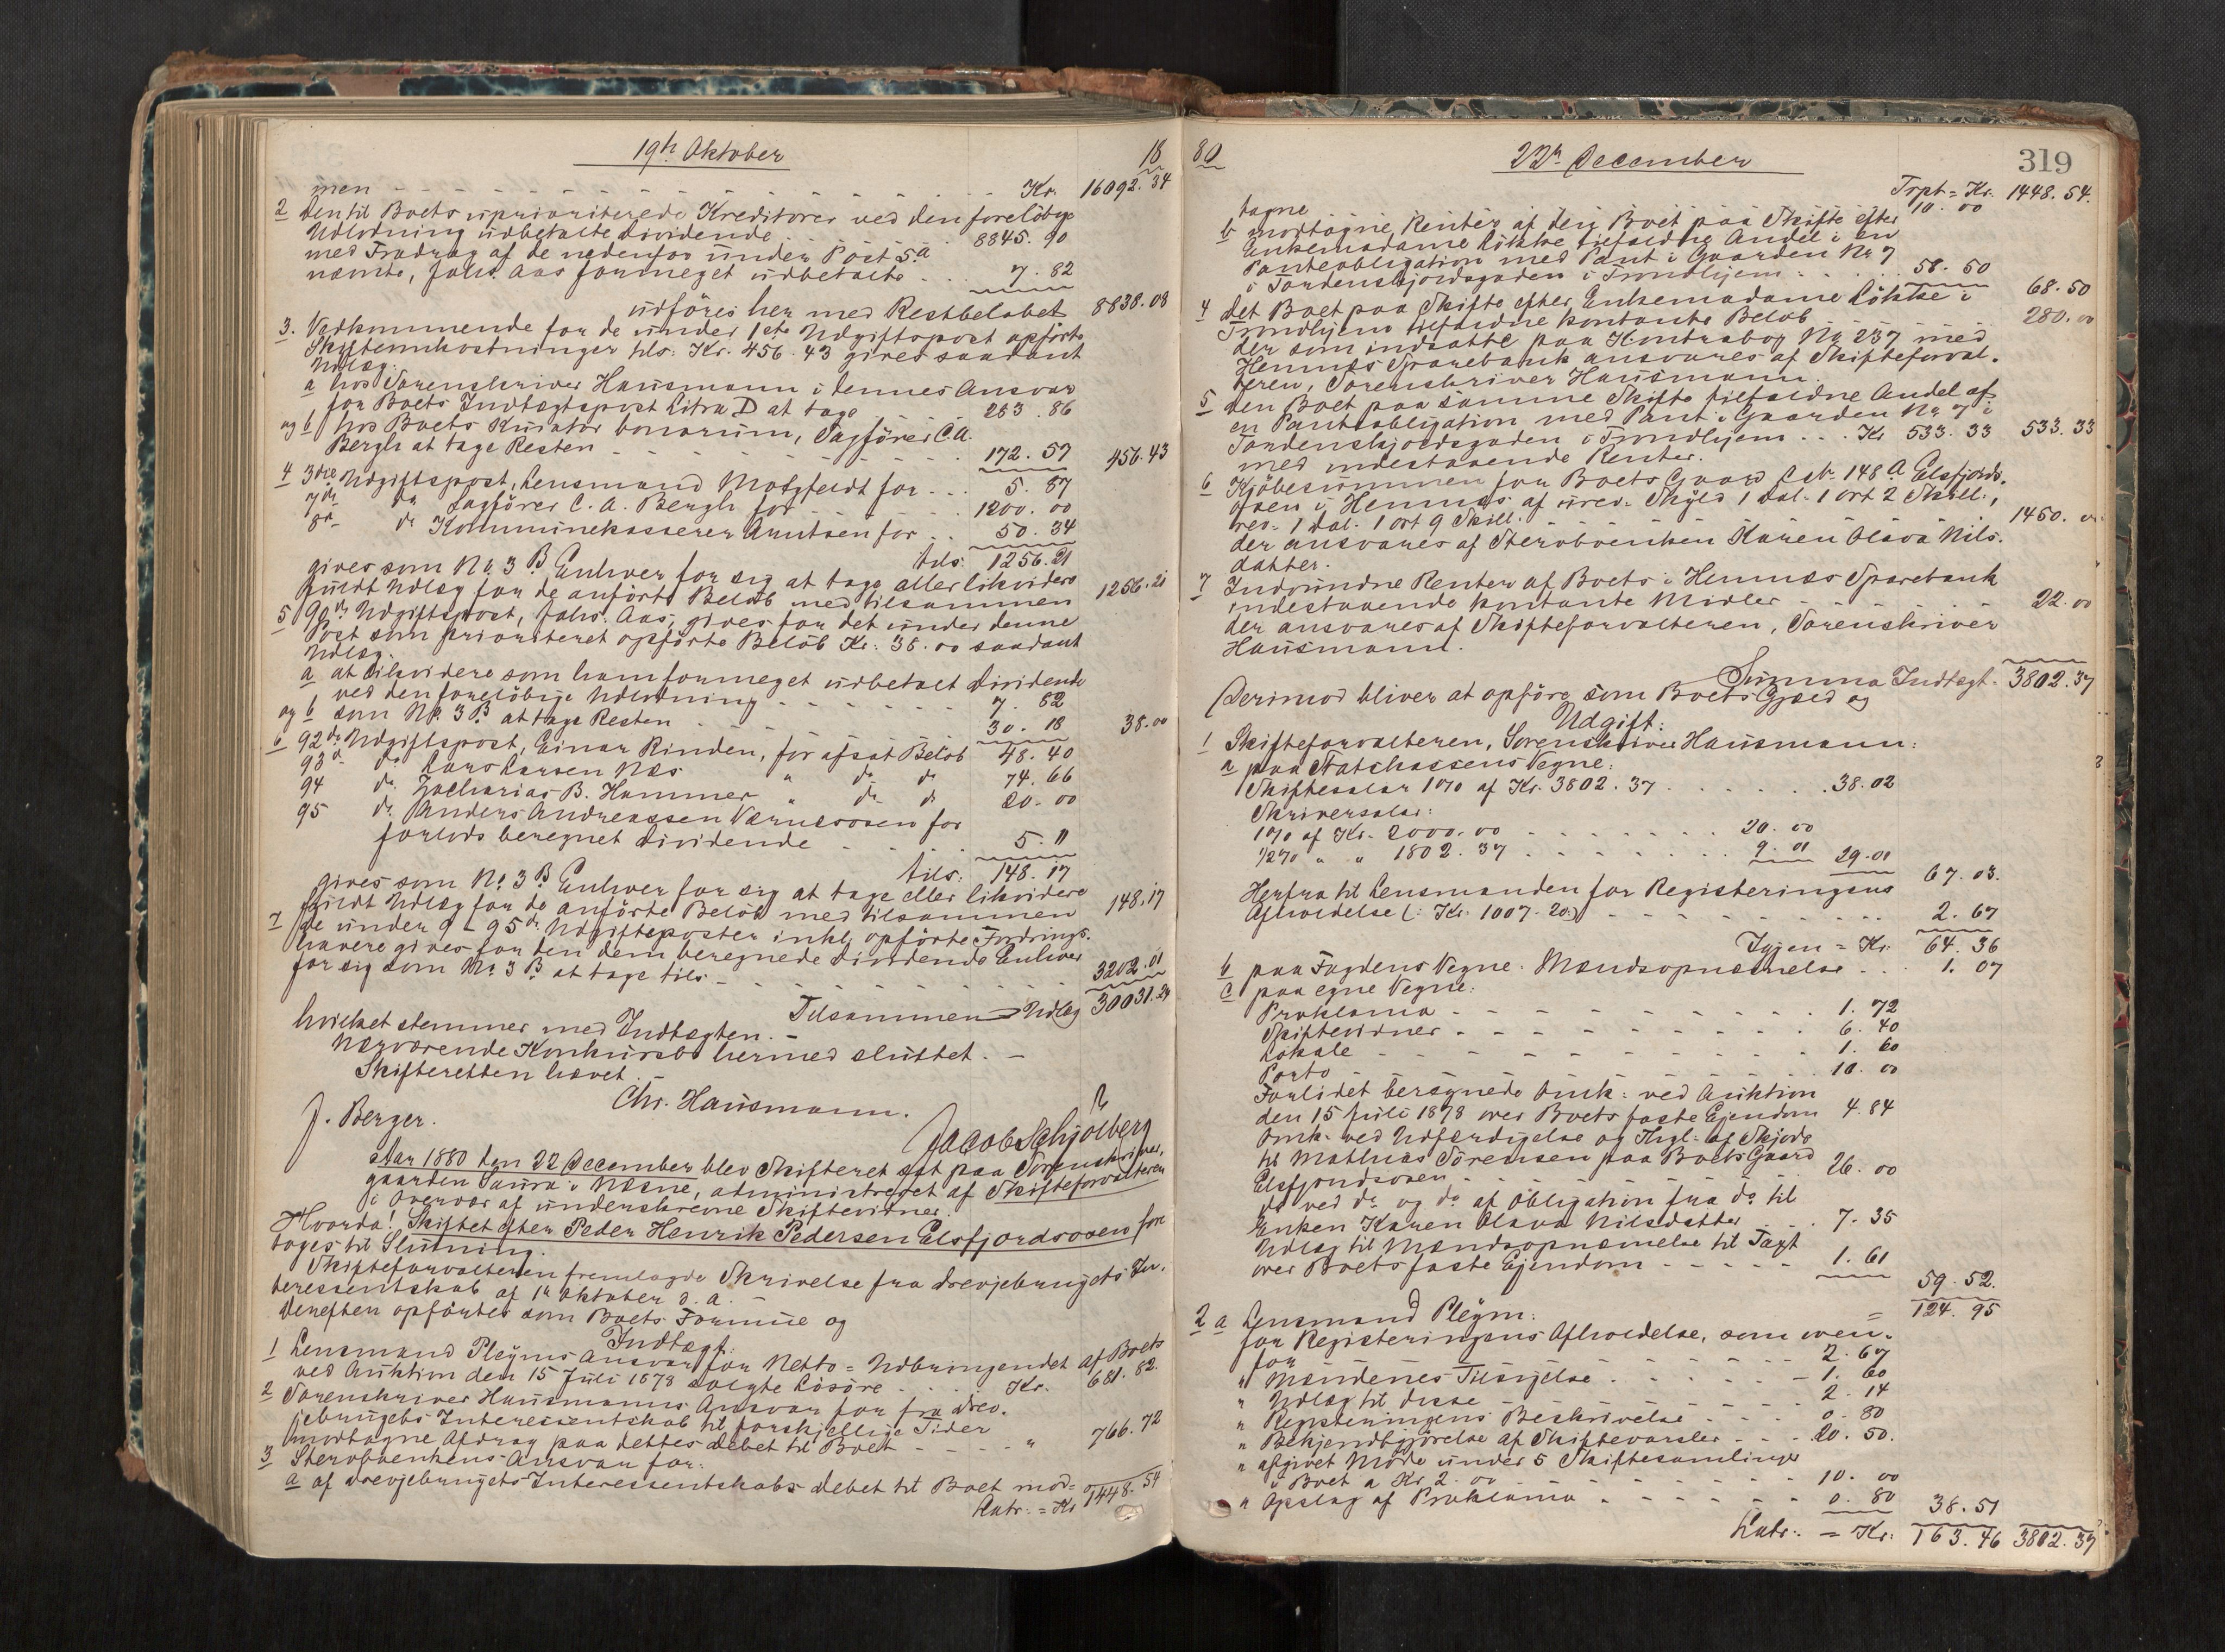 19de Oktober 18
men - - - - - - - - - - Kr. 16092.34
2 den til Boets uprioriterede Kreditorer ved den foreløbige
Udlodning udbetalte Dividende . . . 8845.90
med Fradrag af de nedenfor under Post 5 a
nævnte, Johs. Aas formeget udbetalte . . 7.82
udføres her med Restbeløbet 8838.08
3. Vedkommende for de under 1ste Udgiftspost opførte
Skifteomkostninger tils: Kr. 456.43 gives saadant
Udlæg:
a hos Sorenskriver Hausmann i dennes Ansvar
for Boets Indtægtspost Litra D at tage . . . 283.86
og b hos Boets Kurator bonorum, Sagfører C.A.
Bergh at tage Resten - - - - - - - - 172.57 456.43
4 3die Udgiftspost, Lensmand Motzfeldt for - . . 5.87
7de do Sagfører C. A. Bergh for - - - - . 1200.00
8de do Kommunekasserer Arntsen for . . 50.34
tils: 1256.21
gives som No 3 B Enhver for sig at tage eller likvidere
fuldt Udlæg for de anførte Beløb med tilsammen 1256.21
5 90de Udgiftspost, Johs. Aas, gives for det under denne
Post som prioriteret opførte Beløb Kr: 38.00 saadant
Udlæg.
a at likvidere som ham formeget udbetalt Dividende
ved den foreløbige Udlodning - - - - - - 7.82
og b som No. 3 B at tage Resten - - - - - 30.18 38.00
6 92de Udgiftspost, Einar Rinden, for afsat Beløb 48.40
93d do Lars Larsen Næs " do do 74.66
94 do Zacharias B. Hammer " do do 20.00
95 do Anders Andreassen Værnesosen for
forlods beregnet Dividende - - - - . 5.11
tils: 148.17
gives som No 3 B Enhver for sig at tage eller likvidere
fuldt Udlæg for de anførte Beløb med tilsammen 148.17
7 De under 9 - 95de Udgiftsposter inkl. opførte Fordrings-
havere gives for den dem beregnede Dividende Enhver
for sig som No 3 B at tage tils - - - - - - - 3202.01
Tilsammen Udlæg 30031.24
hvilket stemmer med Indtægten. -
Nærværende Konkursbo hermed sluttet. -
Skifteretten hævet. -
Chr. Hausmann.
J. Berger. Jacob Schjølberg
Aar 1880 den 22 December blev Skifteret sat paa Sorenskriver-
gaarden Saura i Næsne, administreret af Skifteforvalteren
i Overvær af underskrevne Skiftevidner.
Hvorda! Skiftet efter Peder Henrik Pedersen Elsfjordsosen fore
toges til Slutning.
Skifteforvalteren fremlagde Skrivelse fra Drevjebrugets In-
teressentskab af 1de Oktober d. a. -
Derefter opførtes som Boets Formue og
Indtægt:
1 Lensmand Pleyms Ansvar for Netto = Udbringendet af Boets
ved Auktion den 15 Juli 1878 solgte Løsøre . . . . Kr. 681.82.
2 Sorenskriver Hausmanns Ansvar for fra Drev-
jebrugets Interessentskab til forskjellige Tider
modtagne Afdrag paa dettes Debet til Boet - - - - " 766.72
3 Stervboenkens Ansvar for:
a af Drevjebrugets Interessentskabs Debet til Boet mod-
Latr: = Kr 1448.54
80 22de December 319
Trpt = Kr. 1448.54.
tagne 10.00
b modtagne Renter af den Boet paa Skifte efter
Enkemadame Løkke tilfaldne Andel i en
Panteobligation med Pant i Gaarden No 7
i Tordenskjoldsgaden i Trondhjem - . . . . 58.50 68.50
4 det Boet paa Skifte efter Enkemadame Løkke i
Trondhjem tilfaldne kontante Beløb . . . 280.00
der som indsatte paa Kontrabog No 237 med
Hemnæs Sparebank ansvares af Skifteforval-
teren, Sorenskriver Hausmann.
5 den Boet paa samme Skifte tilfaldne Andel af
en Panteobligation med Pant i Gaarden No 7 i
Tordenskjoldsgaden i Trondhjem . . . Kr 533.33 533.33
med indestaaende Renter.
6 Kjøbesummen for Boets Gaard L No 148 a Elsfjords-
osen i Hemnæs af urev. Skyld 1 Dal. 1 Ort 2 Skill.,
rev. 1 Dal. 1 Ort 9 Skill. - - - - - - - 1450.00
der ansvares af Stervboenken Karen Olava Nils-
datter.
7 Indvundne Renter af Boets i Hemnæs Sparebank
indestaaende kontante Midler - - - - - - 22.00
der ansvares af Skifteforvalteren, Sorenskriver
Hausmann.
Summa Indtægt. 3802.37
Derimod bliver at opføre som Boets Gjæld og
Udgift:
1 Skifteforvalteren, Sorenskriver Hausmann:
a paa Statskassens Vegne:
Skiftesalar 1% af Kr. 3802.37 . . . . . . 38.02
Skriversalar:
1% af Kr. 2000.00 - - - - - - - 20.00
1/2% " " 1802.37 . - - - - - - 9.01 29.01
67.03.
Herfra til Lensmanden for Registeringens
Afholdelse (: Kr. 1007.20:) - - - - - - - 2.67
Igjen = Kr. 64.36
b paa Fogdens Vegne: Mændsopnævnelse . . 1.07
c paa egne Vegne:
Proklama - - - - - - - - - - 1.72
Skiftevidner - - - - - - - - - - 6.40
Lokale - - - - - - - - - - - 1.60
Porto - - - - - - - - - - - 10.00
Forlidet beregnede Omk: ved Auktion
den 15 Juli 1878 over Boets faste Ejendom 4.84
Omk. ved Udfærdigelse og Thgl: af Skjøde
til Mathias Sørensen paa Boets Gaard
Elsfjordsosen - - - - - - - - - 26.00
do ved do og do af Obligation fra do til
Enken Karen Olava Nilsdatter . . . 7.35
Udlæg til Mændsopnævnelse til Taxt
over Boets faste Ejendom - - - - - 1.61
59.52.
= 124.95
2 a Lensmand Pleym:
for Registeringens Afholdelse, som oven-
for - - - - - - - - - - 2.67
" Mændenes Tilsigelse . - - - - - - 1.60
" Udlæg til disse - - - - - - - 2.14
" Registeringens Beskrivelse - - - - 0.80
" Bekjendtgjørelse af Skiftevarsler - - - 20.50.
" afgivet Møde under 5 Skiftesamlinger
i Boet a Kr. 2.00 - - - - - - - 10.00
" Opslag af Proklama - - - - - - 0.80 38.51
Latr: = Kr: 163.46 3802.37